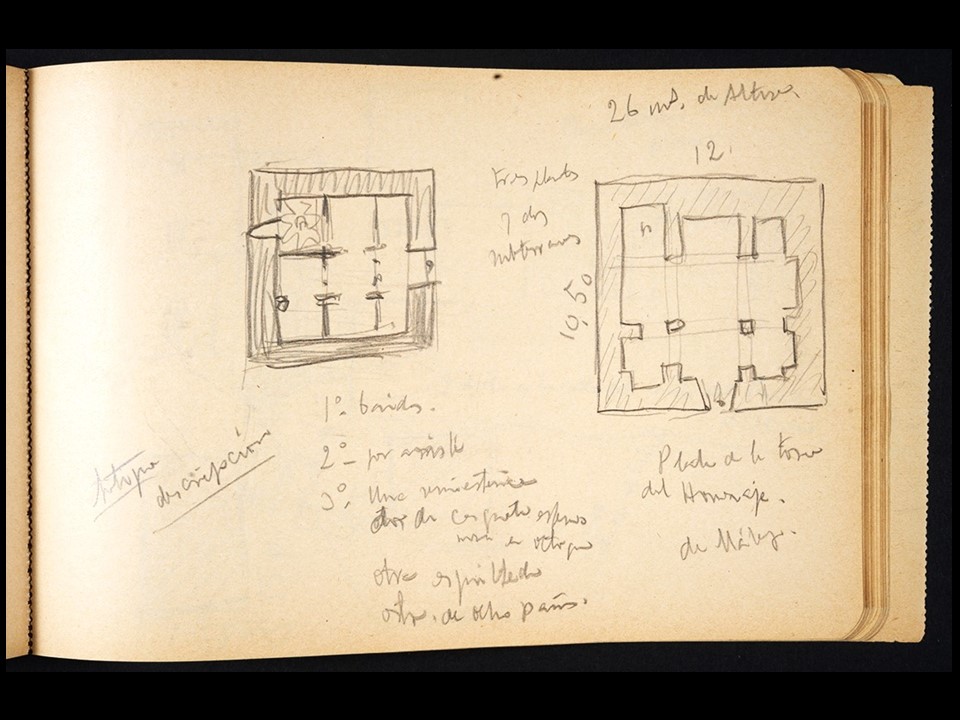 26 ms. de Altura.
12.
tres plantas
y dos
subterraneos
10,50
1º. 
2º - por arista
3º. Una semiesferica
otra de casquete esferico
en octogono
otra esquilfada
otra. de ocho paños.
descripción
Planta de la torre
del Homenaje.
de Málaga.